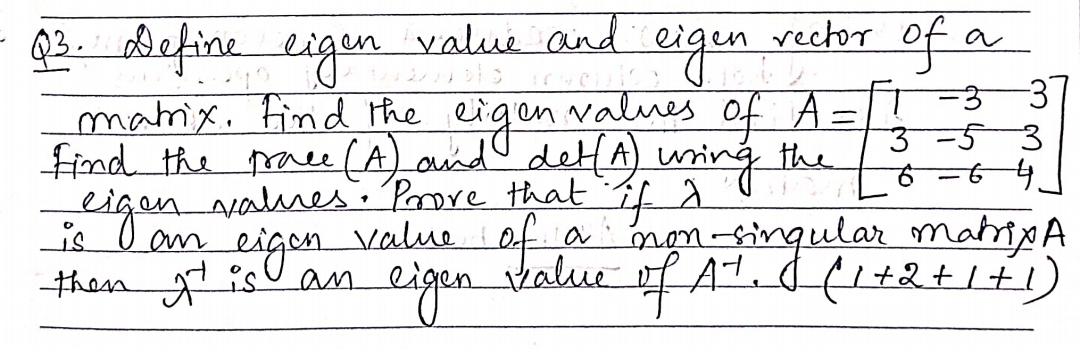 Q3. Define eigen value and eigen vector of a
matrix. Find the eigen values of A = [1 -3 3
3 -5 3
6 -6 4]
Find the trace (A) and det(A) using the
eigen values. Prove that if λ
is an eigen value of a non-singular matrix A
then λ⁻¹ is an eigen value of A⁻¹. (1+2+1+1)